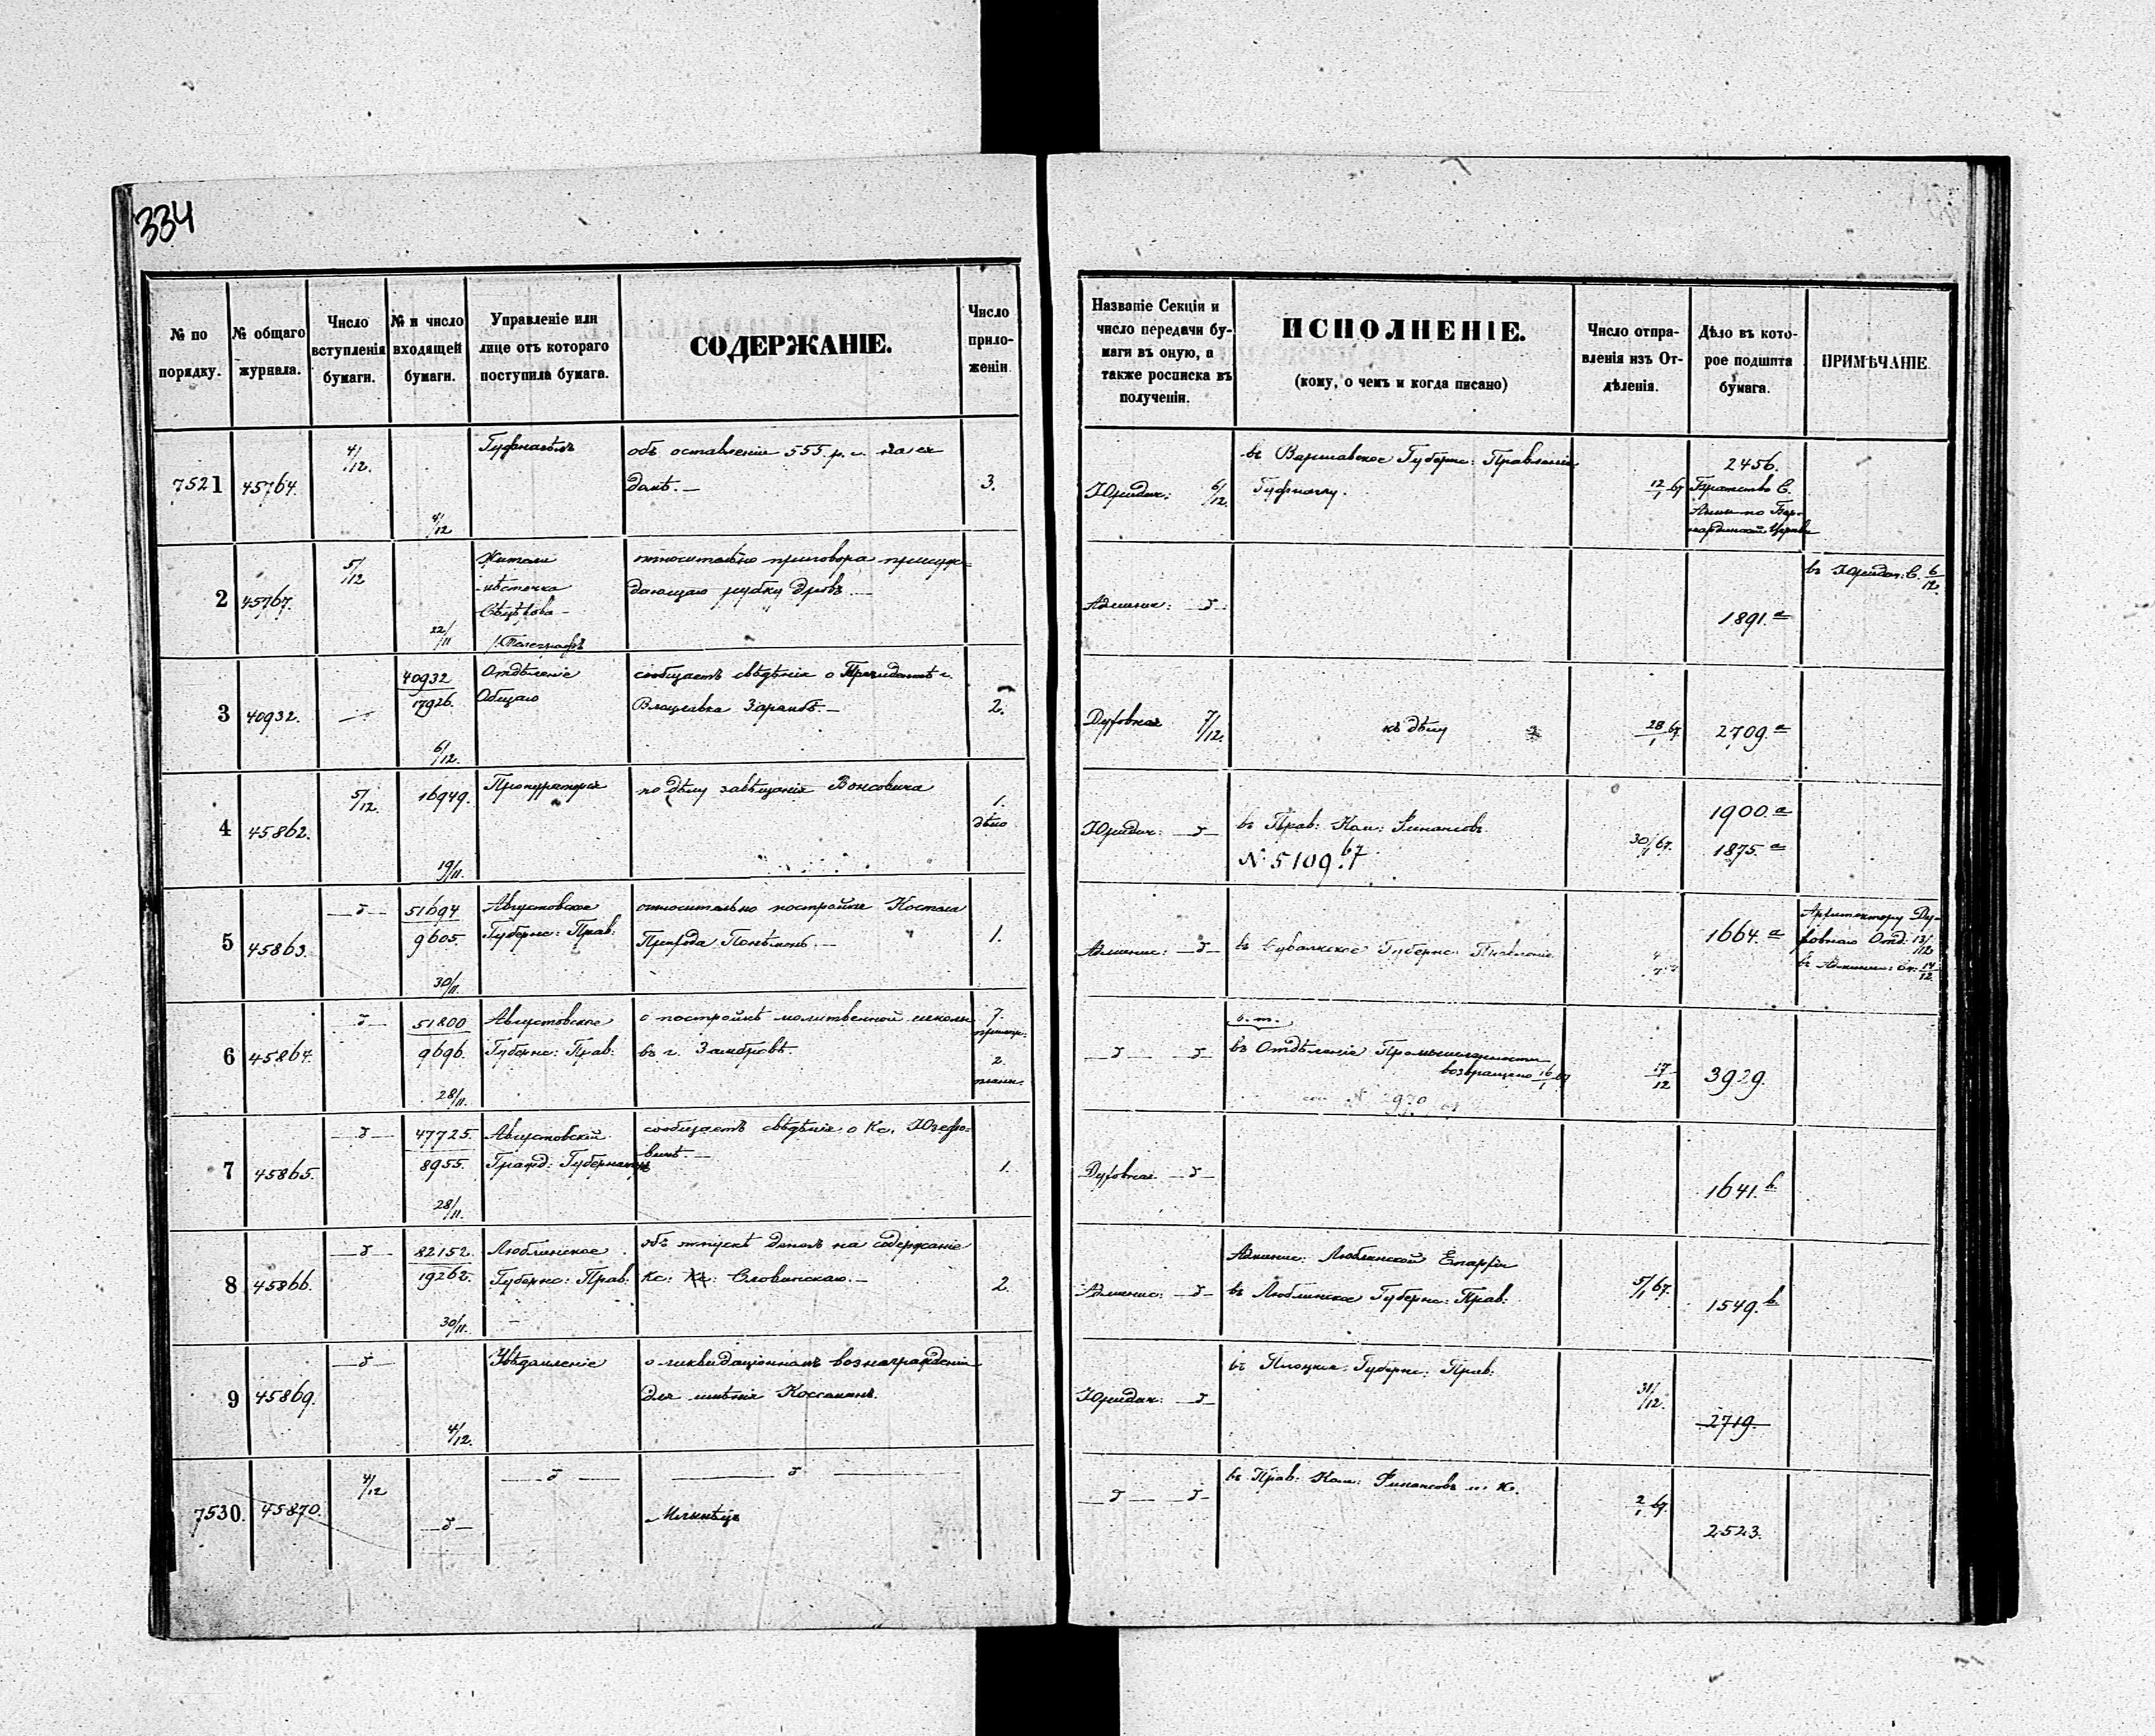 334
№ по порядку.
№ общаго журнала.
Число вступленія бумаги.
№ и число входящей бумаги.
Управленіе или лице отъ котораго поступила бумага.
СОДЕРЖАНІЕ.
Число приложеніи
Названіе Секціи и число передачи бумаги въ оную, а также росписка въ полученіи.
ИСПОЛНЕНІЕ.
(кому, о чемъ и когда писано)
Число отправленія изъ Отдѣленія.
Дѣло въ которое подшита бумага.
ПРИМѢЧАНІЕ
7521 45764. 4/12. 4/12
объ оставленіи 555 р. с.
3.
Юридич: 6/12.
въ Варшавское Губерн: Правленіе
12/1 67
2456.
2 45767. 5/12 22/11
Жители
мѣстечка
относительно приговора
рубку дровъ.—
Админис: —д—
1891.a
въ Юридич: С. 6/12.
3 40932. —
40932
17926.
6/12.
Отдѣленіе
Общаго
сообщаетъ свѣдѣнія о Президентѣ г.
2.
Духовная 7/12.
къ дѣлу
28/1 67.
2709.a
4 45862. 5/12 16949. 19/11.
Прокураторія
по дѣлу завѣщанія Вонсовича
1.
дѣло
Юридич: —д—
въ Прав: Ком: Финансовъ
№ 5109.67
30/1 67.
1900.a
1875.a
5 45863. —д—
51694
9605.
30/11.
Августовское
Губернс: Прав:
относительно постройки Костела
Прихода Понѣмонь.—
1.
Админис: —д—
въ Сувалкское Губернс: Правленіе
1664.a
Архитектору Духовнаго Отд: 13/12
въ Админис: Сек: 14/12.
6 45864. —д—
51800
9696.
28/11.
Августовское
Губернс: Прав:
о постройкѣ молитвенной школы
въ г. Замбровѣ.
7.
2.
план.
—д— —д—
въ Отдѣленіе Промышленности
возвращено 16/1 67
17/12
3929.
7 45865. —д—
47725.
8955.
28/11.
Августовскій
Гражд: Губернаторъ
сообщаетъ свѣдѣнія о Кс. Юзефовичѣ.—
1.
Духовная —д—
1641.b
8 45866. —д—
82152.
19262.
30/11.
Люблинское
Губернс: Прав:
объ отпускѣ денегъ на содержаніе
Кс: Словинскаго.—
2.
Админис: —д—
Админис: Люблинской Епархіи
въ Люблинское Губернс: Прав:
5/1 67.
1549.b
9 45869. —д— 4/12.
Увѣдомленіе
о ликвидаціонномъ вознагражденіи
для имѣнія
Юридич: —д—
въ Плоцкое Губернс: Прав:
31/12.
2719.
7530. 45870. 4/12 —д—
—д— —д—
—д— —д—
въ Прав: Ком: Финансовъ
2/1 67.
2523.